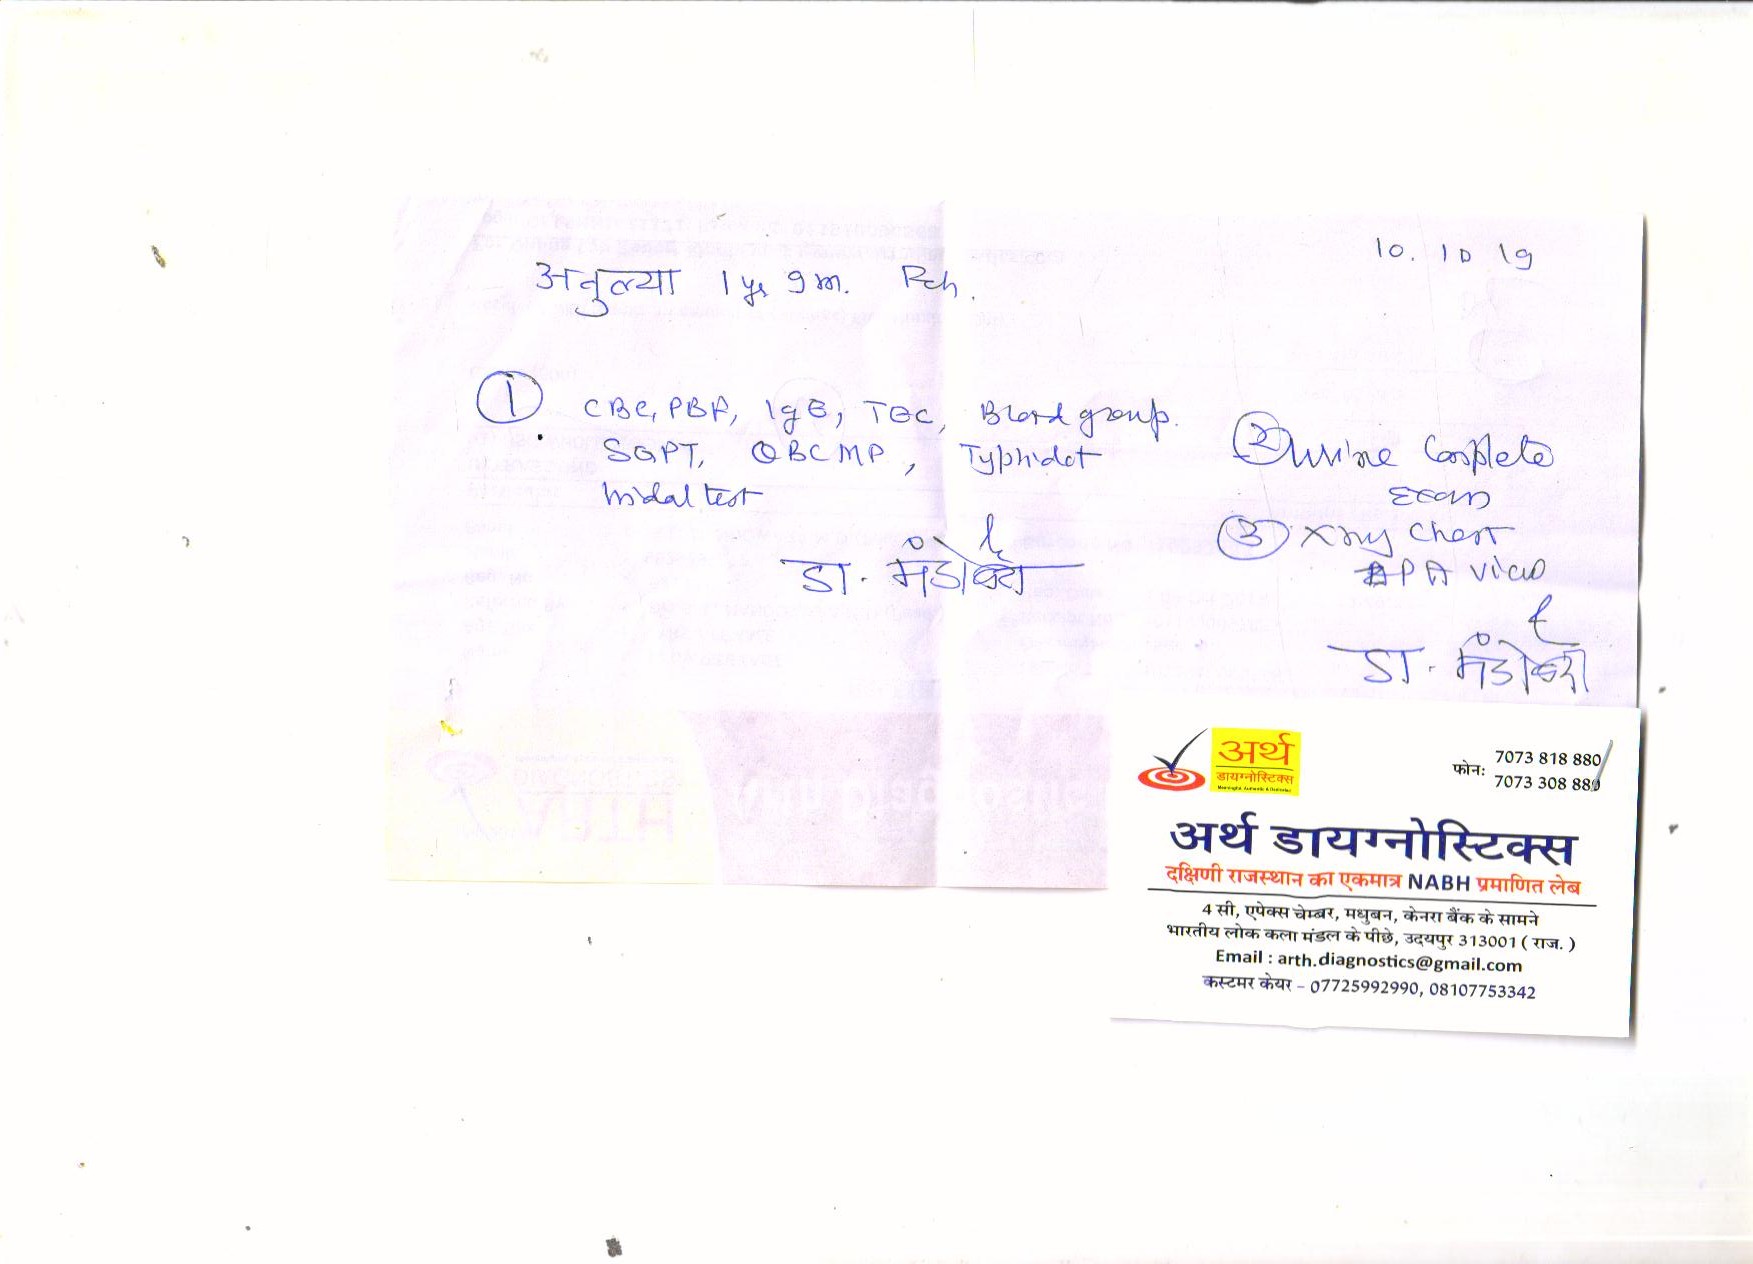 10.10 19
अतुल्या 1 yr 9 m. Fch.
① CBC, PBF, IgE, TEC, Blood group.
SGPT, QBCMP, Typhidot
Widal test
डा. मंडोवरा
② urine Complete
Exam
③ Xray Chest
PA view
डा. मंडोवरा
अर्थ
डायग्नोस्टिक्स
फोन: 7073 818 880
7073 308 880
अर्थ डायग्नोस्टिक्स
दक्षिणी राजस्थान का एकमात्र NABH प्रमाणित लेब
4 सी, एपेक्स चेम्बर, मधुबन, केनरा बैंक के सामने
भारतीय लोक कला मंडल के पीछे, उदयपुर 313001 ( राज. )
Email : arth.diagnostics@gmail.com
कस्टमर केयर – 07725992990, 08107753342